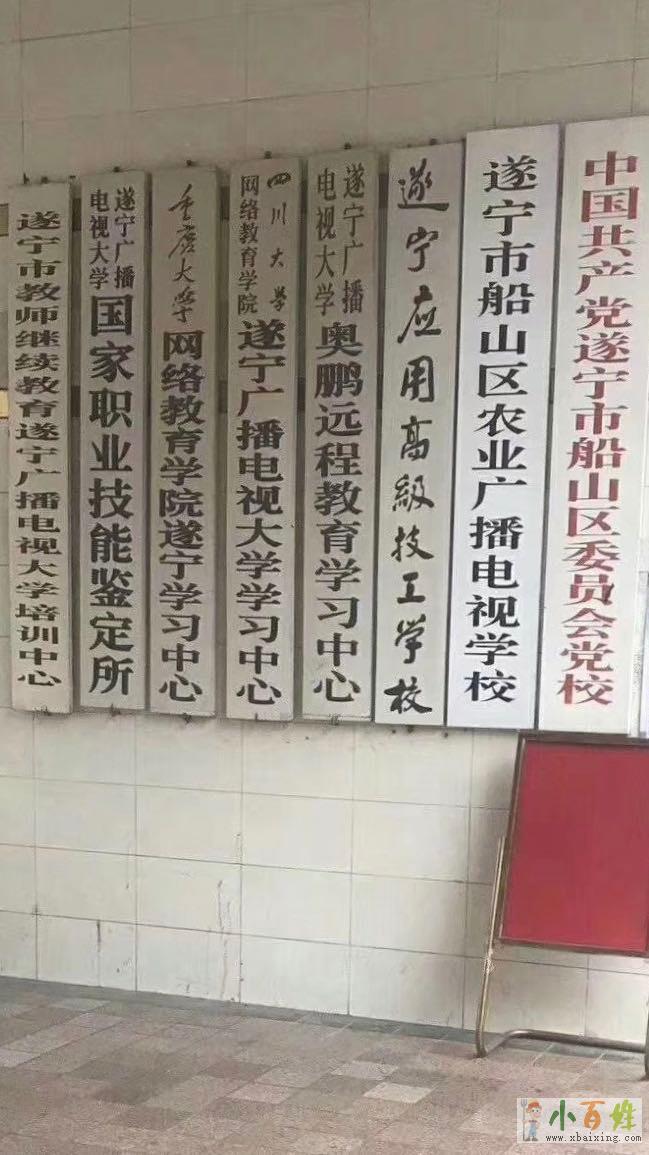 中国共产党遂宁市船山区委员会党校
遂宁市船山区农业广播电视学校
遂宁应用高級技工学校
遂宁广播
电视大学
奥鹏远程教育学习中心
四川大学
网络教育学院
遂宁广播电视大学学习中心
重庆大学
网络教育学院遂宁学习中心
遂宁广播
电视大学
国家职业技能鉴定所
遂宁市教师继续教育遂宁广播电视大学培训中心
小百姓
www.xbaixing.com